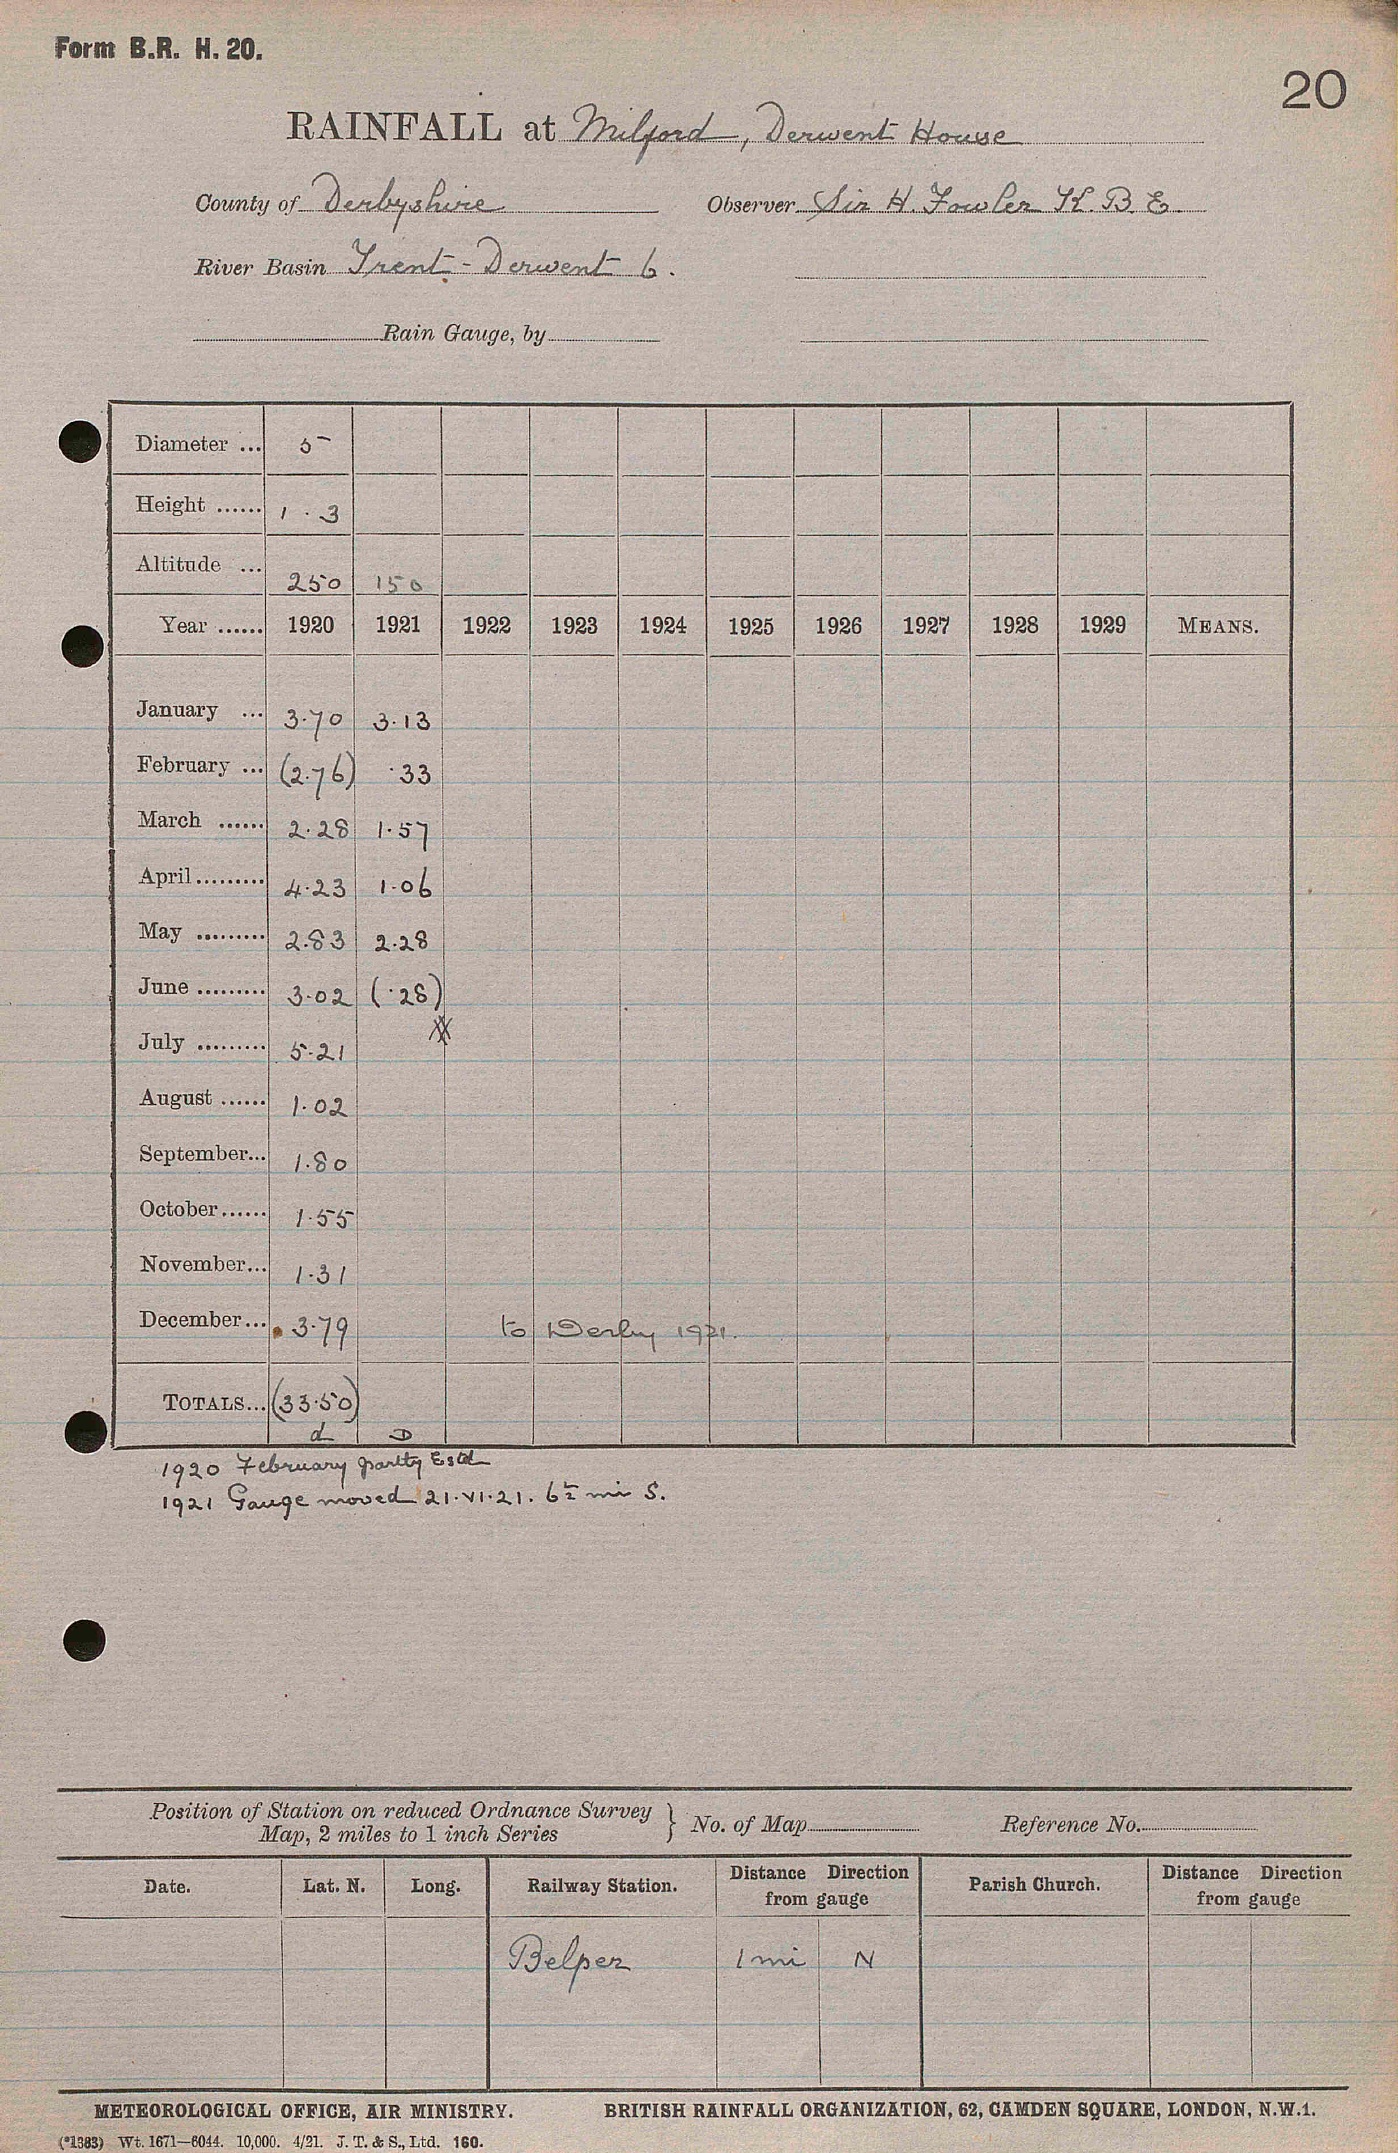 Form B.R. H. 20.
20
RAINFALL at Milford, Derwent House
County of Derbyshire Observer Sir H. Fowler K.B.E.
River Basin Trent - Derwent 6.
Rain Gauge, by
Diameter ... 5
Height ...... 1 . 3
Altitude ... 250 150
Year ...... 1920 1921 1922 1923 1924 1925 1926 1927 1928 1929 MEANS.
January ... 3.70 3.13
February ... (2.76) .33
March ...... 2.28 1.57
April ......... 4.23 1.06
May ......... 2.83 2.28
June ......... 3.02 (.28)
July ......... 5.21
August ...... 1.02
September... 1.80
October...... 1.55
November... 1.31
December... 3.79 to Derby 1921.
TOTALS... (33.50)
d D
1920 February partly Estd
1921 Gauge moved 21.VI.21. 6½ mi S.
Position of Station on reduced Ordnance Survey
Map, 2 miles to 1 inch Series } No. of Map Reference No.
Date. Lat. N. Long. Railway Station. Distance Direction from gauge Parish Church. Distance Direction from gauge
Belper 1 mi N
METEOROLOGICAL OFFICE, AIR MINISTRY. BRITISH RAINFALL ORGANIZATION, 62, CAMDEN SQUARE, LONDON, N.W.1.
(*1383) Wt. 1671—6044. 10,000. 4/21. J. T. & S., Ltd. 160.